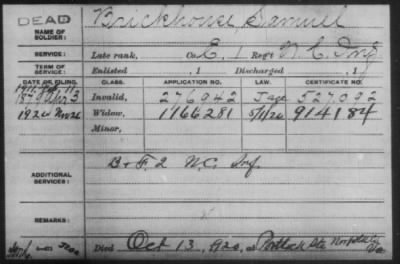 DEAD
NAME OF SOLDIER: Brickhouse, Samuel
SERVICE: Late rank, Co. E, 1 Reg't N.C. Inf
TERM OF SERVICE: Enlisted , 1 Discharged , 1
DATE OF FILING. CLASS. APPLICATION NO. LAW. CERTIFICATE NO.
Invalid, 276942 J age 527.092
1920 Nov 26 Widow, 1166281 5/1/20 914184
Minor,
ADDITIONAL SERVICES: B + F. 2 N.C. Inf.
REMARKS:
Died Oct 13, 1920, at Portlock Sta Norfolk Co Va